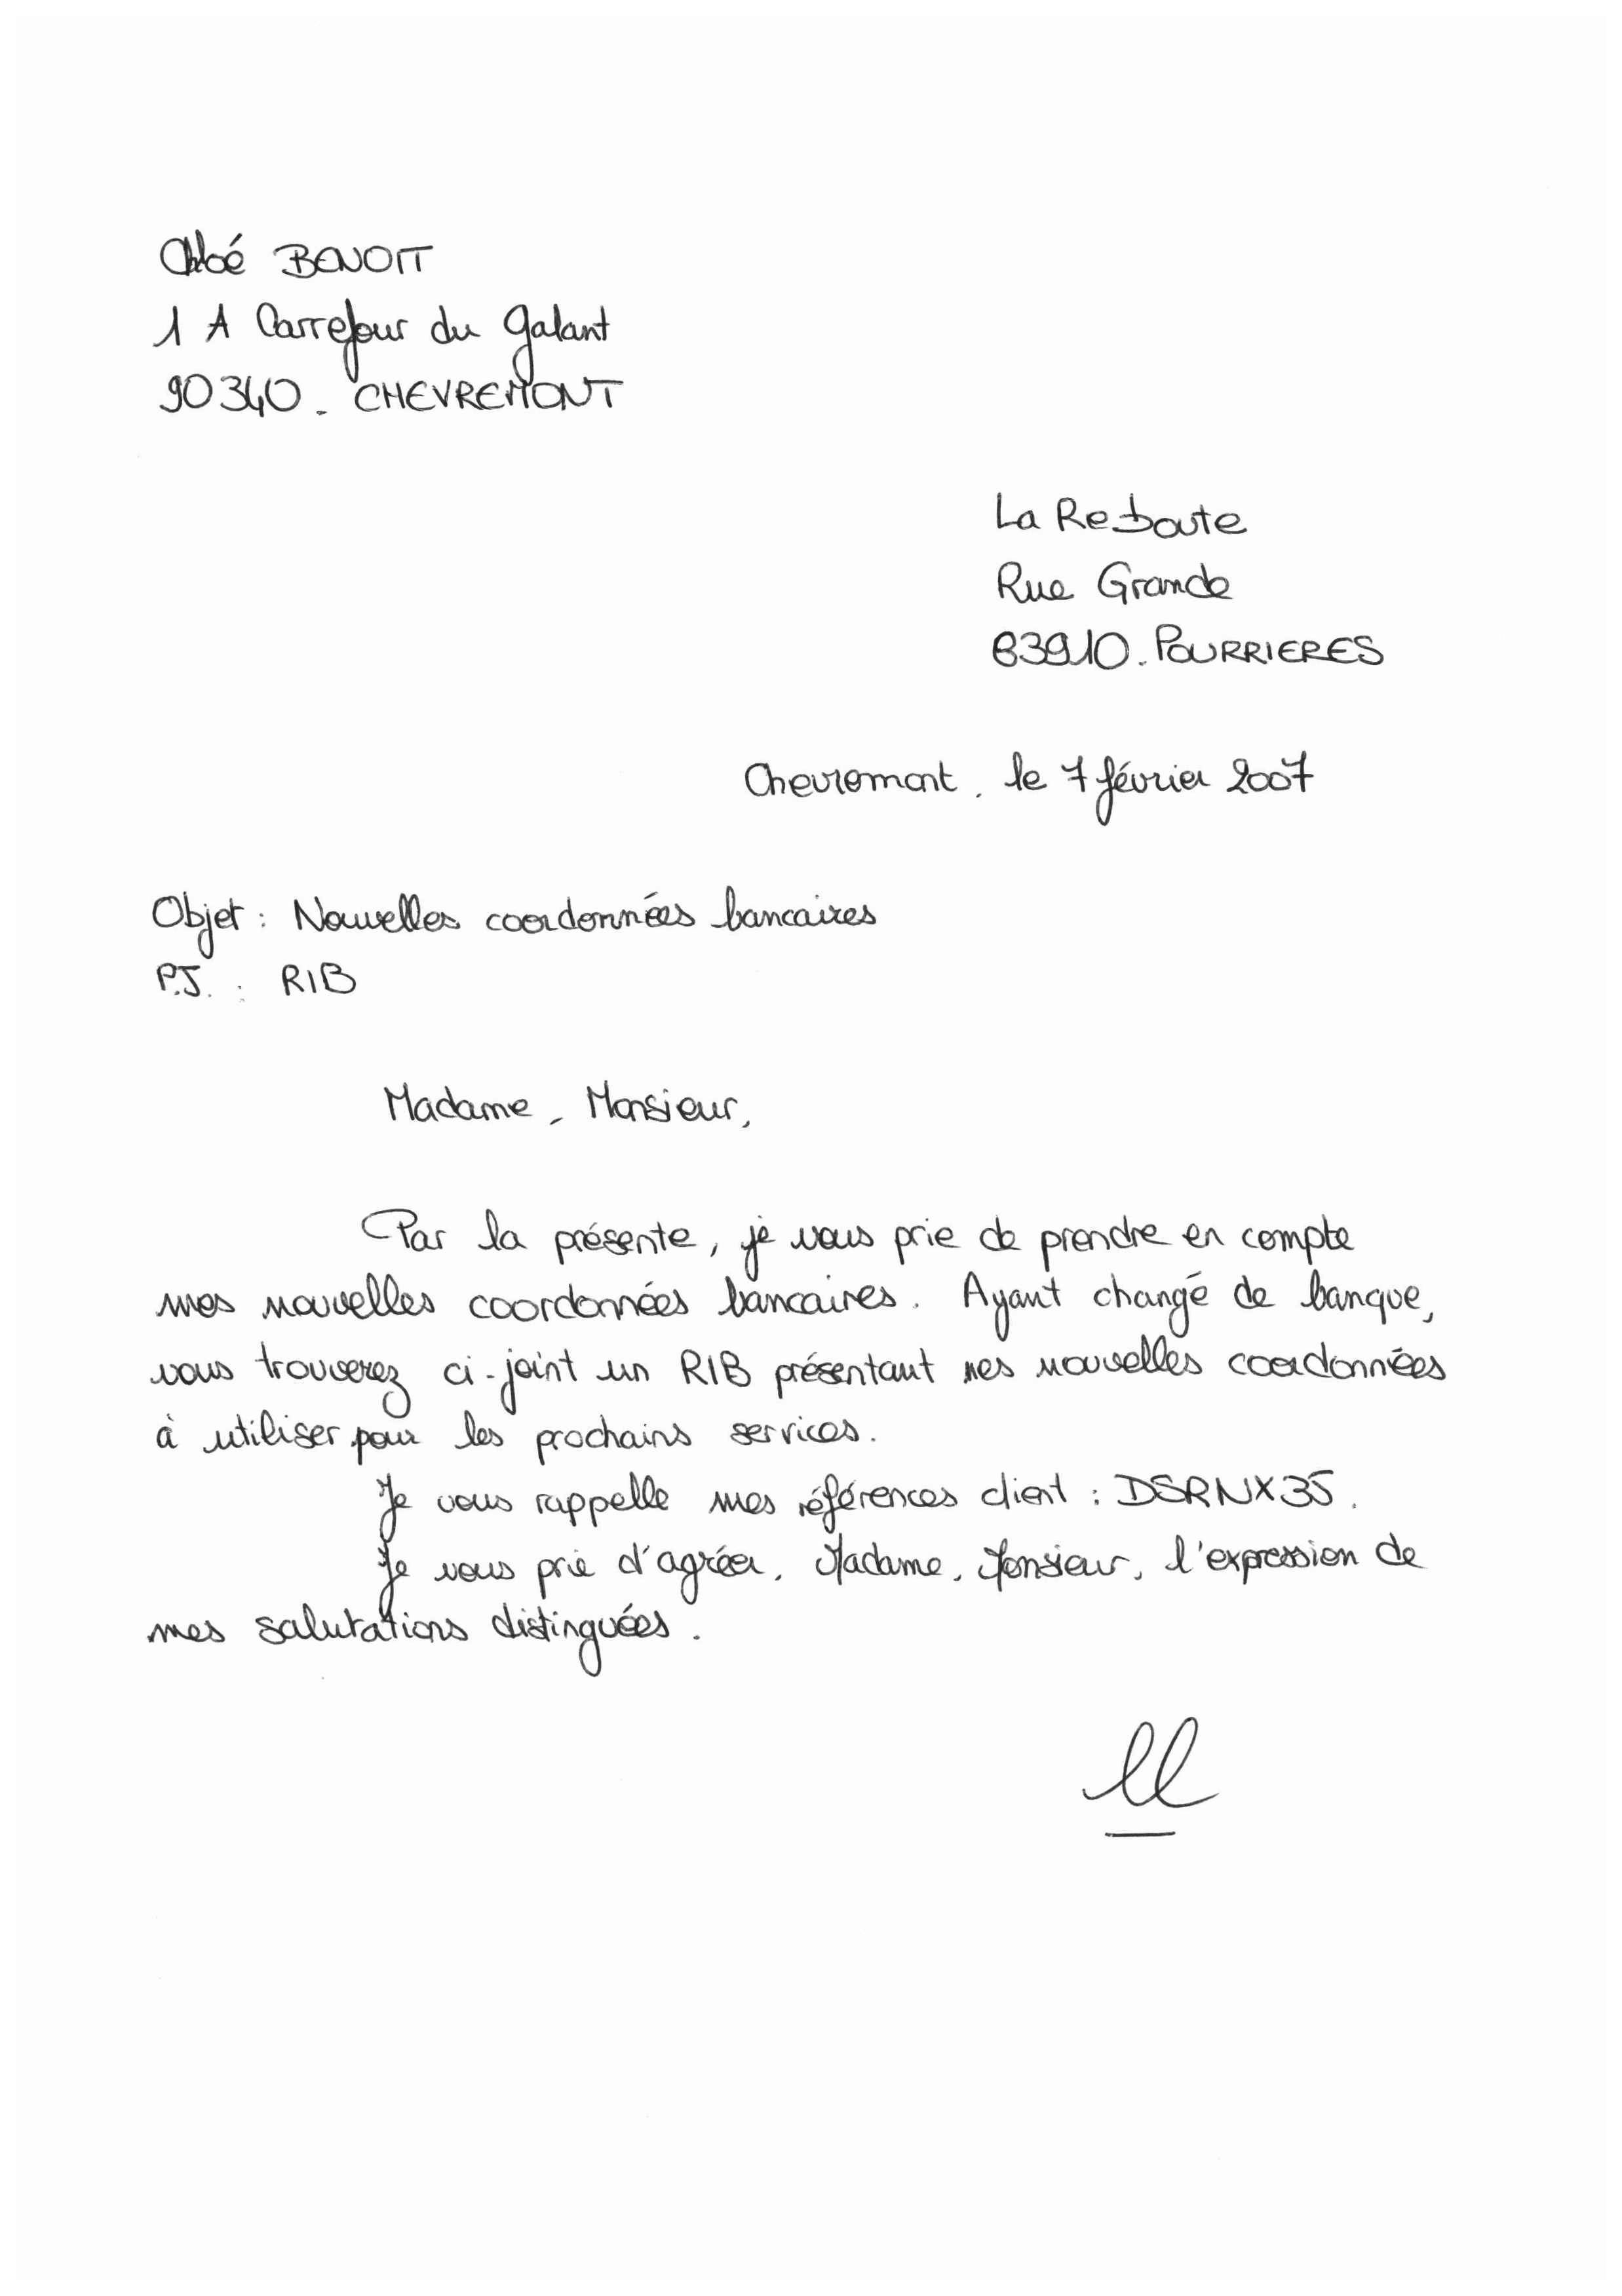 Chloé BENOIT
1 A Carrefour du Galant
90340 - CHEVREMONT
La Redoute
Rue Grande
83910. POURRIERES
Chevremont, le 7 février 2007
Objet : Nouvelles coordonnées bancaires
P.J. : RIB
Madame, Monsieur,
Par la présente, je vous prie de prendre en compte
mes nouvelles coordonnées bancaires. Ayant changé de banque,
vous trouverez ci-joint un RIB présentant mes nouvelles coordonnées
à utiliser pour les prochains services.
Je vous rappelle mes références client : DSRNX35.
Je vous prie d'agréer, Madame, Monsieur, l'expression de
mes salutations distinguées.